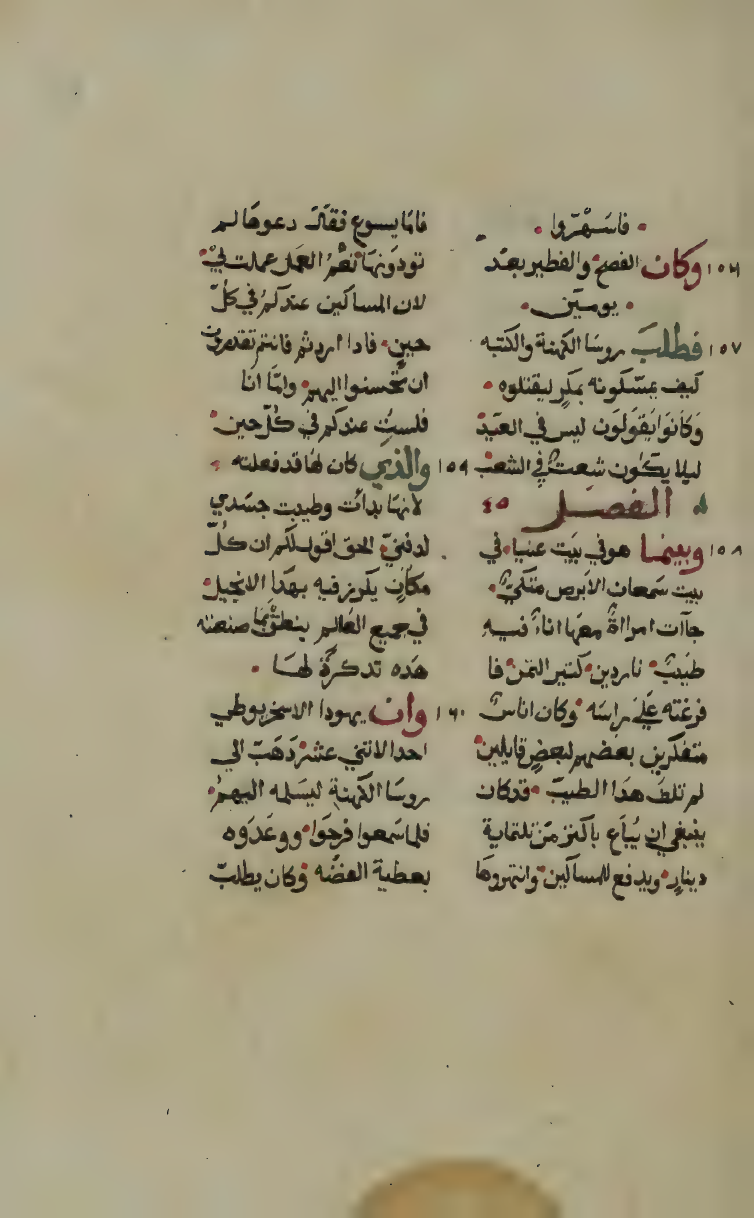 فاسهروا
١٥٦ وكان الفصح والفطير بعد
يومين
١٥٧ فطلب روسا الكهنة والكتبه
كيف يمسكونه بمكر ليقتلوه
وكانوا يقولون ليس في العيد
ليلا يكون شعت في الشعب
الفصل ٤٥
١٥٨ وبينما هو في بيت عنيا في
بيت سمعان الابرص متكي
جاآت امرااة معها اناء فيه
طيب ناردين كثير الثمن فا
فرغته على راسه وكان اناس
متفكرين بعضهم لبعض قايلين
لم تلف هدا الطيب قد كان
ينبغي ان يباع باكثر من تلتماية
دينار ويدفع للمساكين وانتهروها
فاما يسوع فقال دعوها لم
تودونها نعم العمل عملت لي
لان المساكين عندكم في كل
حين فادا اردتم فانتم تقدرون
ان تحسنوا اليهم واما انا
فلست عندكم في كل حين
١٥٩ والذي كان لها قد فعلته
لانها بدات وطيبت جسدي
لدفني الحق اقول لكم ان كل
مكان يكرز فيه بهدا الانجيل
في جميع العالم ينطق بما صنعته
هده تدكرة لها
١٦٠ وان يهودا الاسخريوطي
احد الاتني عشر دهب الى
روسا الكهنة ليسلمه اليهم
فلما سمعوا فرحوا ووعدوه
بعطية الفضه وكان يطلب